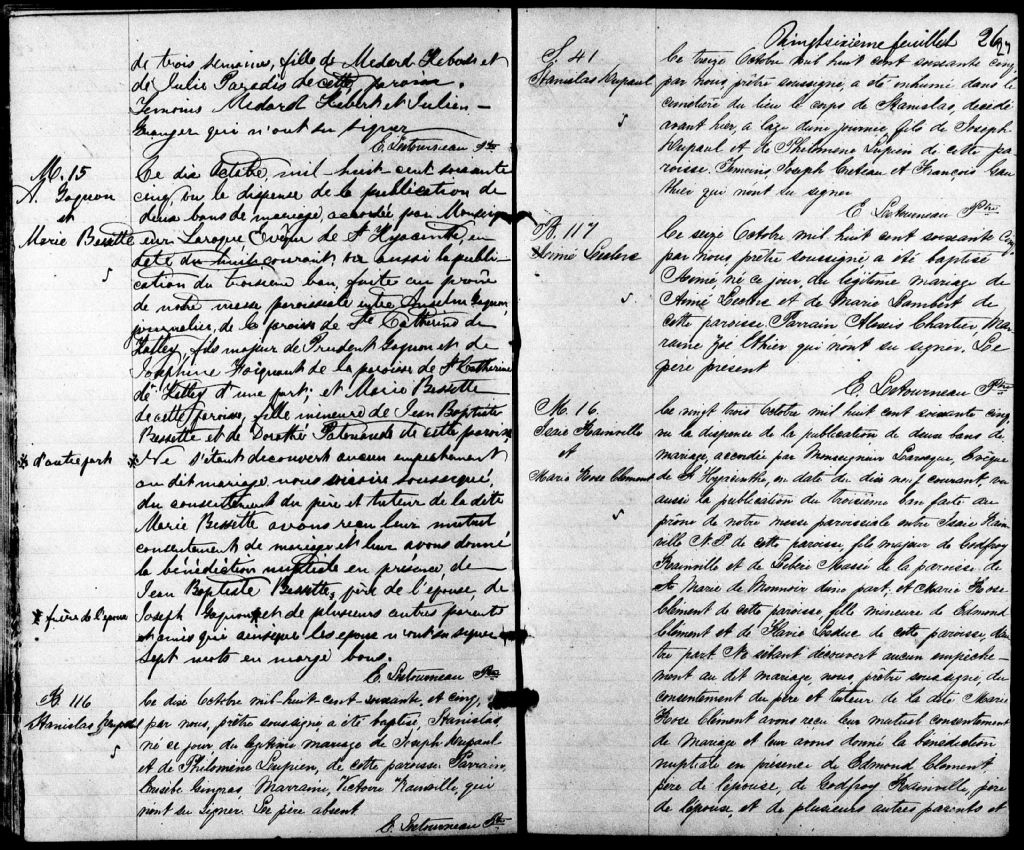 de trois semaines, fille de Medard Hebert et
de Julie Paradis de cette paroisse.
Temoins Medard Hebert et Julien
Granger qui n'ont su signer
E. Letourneau Ptre
M. 15
A. Gagnon
et
Marie Bessette
Le dix Octobre mil-huit-cent soixante
cinq vu la dispense de la publication de
deux bans de mariage, accordée par Monseign
eur Laroque Evêque de St Hyacinthe, en
date du huit courant; vu aussi la publi-
cation du troisieme ban, faite au prône
de notre messe paroissiale entre Anselme Gagnon
journalier, de la paroisse de Ste Catherine de
Hatley, fils majeur de Prudent Gagnon et de
Josephine Poignant de la paroisse de St Catherine
de Hatley d'une part; et Marie Bessette
de cette paroisse, fille mineure de Jean Baptiste
Bessette et de Dorothé Patenaude de cette paroisse
* d'autre part
* Ne s'étant decouvert aucun empechement
au dit mariage, nous vicaire soussigné,
du consentement du père et tuteur de la dite
Marie Bessette avons reçu leur mutuel
consentement de mariage et leur avons donné
la bénédiction nuptiale en présence de
Jean Baptiste Bessette, père de l'épouse, de
* frère de l'époux
Joseph Gagnon * et de plusieurs autres parents
et amis qui ainsi que les epoux n'ont su signer
Sept mots en marge bons.
E. Letourneau Ptre
B 116
Stanislas Dupaul
Le dix Octobre mil-huit-cent-soixante, et cinq,
par nous, prêtre soussigné a été baptisé, Stanislas,
né ce jour du légitime mariage de Joseph Dupaul
et de Philomène Lupien, de cette paroisse. Parrain,
Eusèbe Gingras, Marraine, Victoire Rainville, qui
n'ont su signer. Le père absent.
E. Letourneau Ptre
Vingtsixième feuillet 26
27
S. 41
Stanislas Dupaul
Le treize Octobre mil huit cent soixante cinq,
par nous, prêtre soussigné, a été inhumé dans le
cimetière du lieu le corps de Stanislas, décédé
avant hier, à l'age d'une journée, fils de Joseph
Dupaul et de Philomène Lupien de cette pa-
roisse. Temoins, Joseph Croteau et François Gau
thier qui n'ont su signer
E. Letourneau Ptre
B. 117
Aimé Leclerc
Le seize Octobre mil huit cent soixante cinq,
par nous prêtre soussigné a été baptisé
Aimé né ce jour, du légitime mariage de
Aimé Leclerc et de Marie Lambert de
cette paroisse. Parrain Alexis Chartier, Mar-
raine Zoé Ethier qui n'ont su signer. Le
père présent
E. Letourneau Ptre
M. 16.
Isaie Rainville
et
Marie Rose Clement
Le vingt trois Octobre mil huit cent soixante cinq
vu la dispense de la publication de deux bans de
mariage, accordée par Monseigneur Laroque, Evêque
de St Hyacinthe, en date du dix neuf courant vu
aussi la publication du troisième ban faite au
prône de notre messe paroissiale entre Isaie Rain
ville N.P. de cette paroisse, fils majeur de Godfroy
Rainville et de Massé de la paroisse de
Ste Marie de Monnoir d'une part, et Marie Rose
Clement de cette paroisse, fille mineure de Edmond
Clément et de Flavie Leduc de cette paroisse, d'au
tre part. Ne s'étant découvert aucun empêche-
ment au dit mariage, nous, prêtre soussigné, du
consentement du père et tuteur de la dite Marie
Rose Clément avons reçu leur mutuel consentement
de Mariage et leur avons donné la bénédiction
nuptiale en présence de Edmond Clement,
père de l'épouse, de Godfroy Rainville, père
de l'épouse, et de plusieurs autres parents et